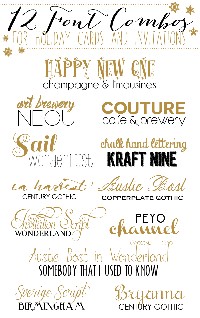 12 Font Combos
FOR HOLIDAY CARDS AND INVITATIONS
HAPPY NEW ONE
champagne & limousines
art brewery
NEOU
COUTURE
cafe & brewery
Sail
wanderlust
chalk hand lettering
KRAFT NINE
CENTURY GOTHIC
Rustic
COPPERPLATE GOTHIC
Invitation Script
WONDERLAND
PEYO
channel
Austie Bost in Wonderland
SOMEBODY THAT I USED TO KNOW
George Script
BIRMINGHAM
Bryanna
CENTURY GOTHIC